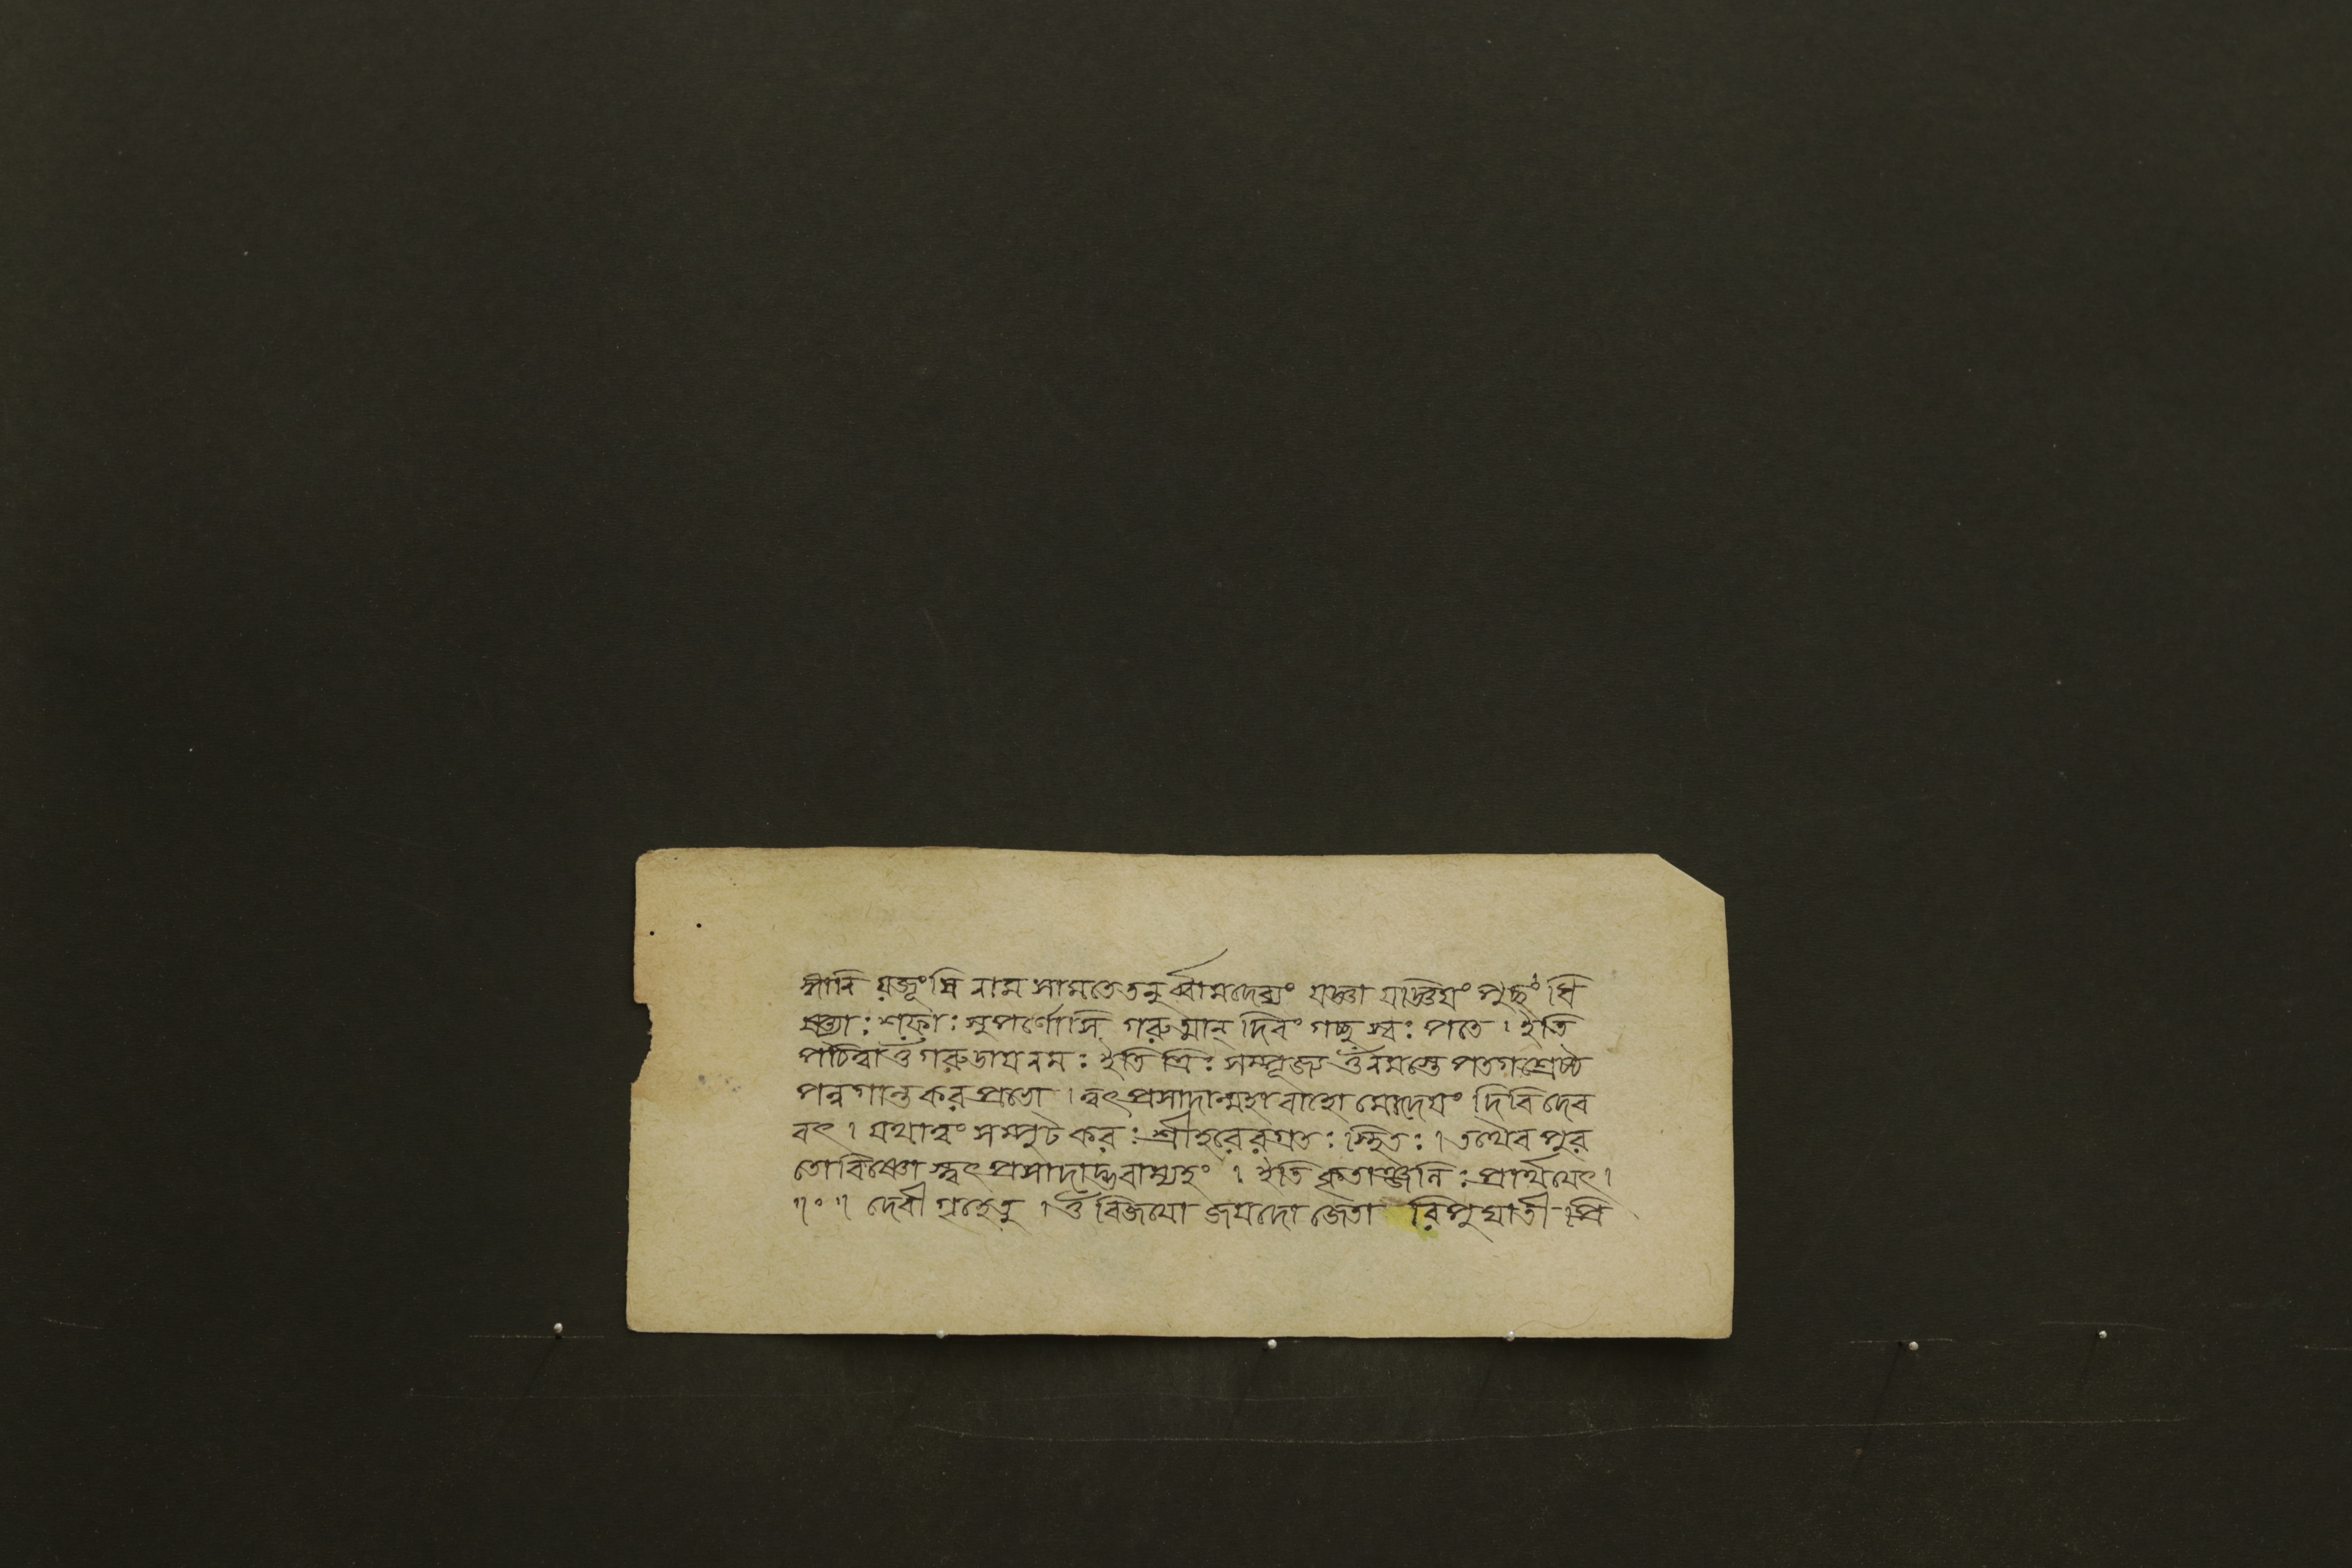 ঙ্গানি যজূংষি নাম সামতেতনূর্ব্বামদেব্যং যজ্ঞা যজ্ঞিয়ং পুচ্ছং ধি
ষ্ণ্যাঃ শফাঃ সুপর্ণোসি গরুত্মান্ দিবং গচ্ছ স্বঃ পতে । ইতি
পঠিত্বা ওঁ গরুডায় নমঃ ইতি ত্রিঃ সম্পূজ্য ওঁ নমস্তে পতগশ্রেষ্ঠ
পন্নগান্তকর প্রভো । ত্বৎপ্রসাদান্মহাবাহো মোদেয়ং দিবি দেব
বৎ । যথাত্বং সম্পুটকরঃ শ্রীহরেরগ্রতঃ স্থিতঃ । তথৈব পুর
তোবিষ্ণো স্ত্বৎপ্রসাদাদ্ভবাম্যহং । ইতি কৃতাঞ্জলিঃ প্রার্থয়েৎ ।
॥০॥ দেবীগৃহেতু । ওঁ বিজয়ো জয়দো জেতা রিপুঘাতী প্রি